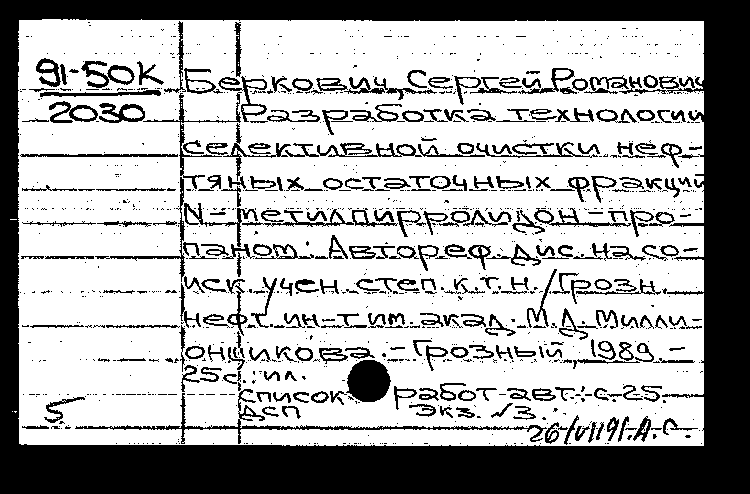 91-50К
2030
Беркович, Сергей Романович
Разработка технологии
селективной очистки неф-
тяных остаточных фракций
N-метилпирролидон-про-
паном: Автореф. дис. на со-
иск учен. степ. к.т.н. / Грозн.
нефт. ин-т им. акад. М.Д. Милли-
онщикова. - Грозный, 1989. -
25с.: ил.
список работ авт.: с. 25.
ДСП Экз. №3.
5
26/VII91. А.С.